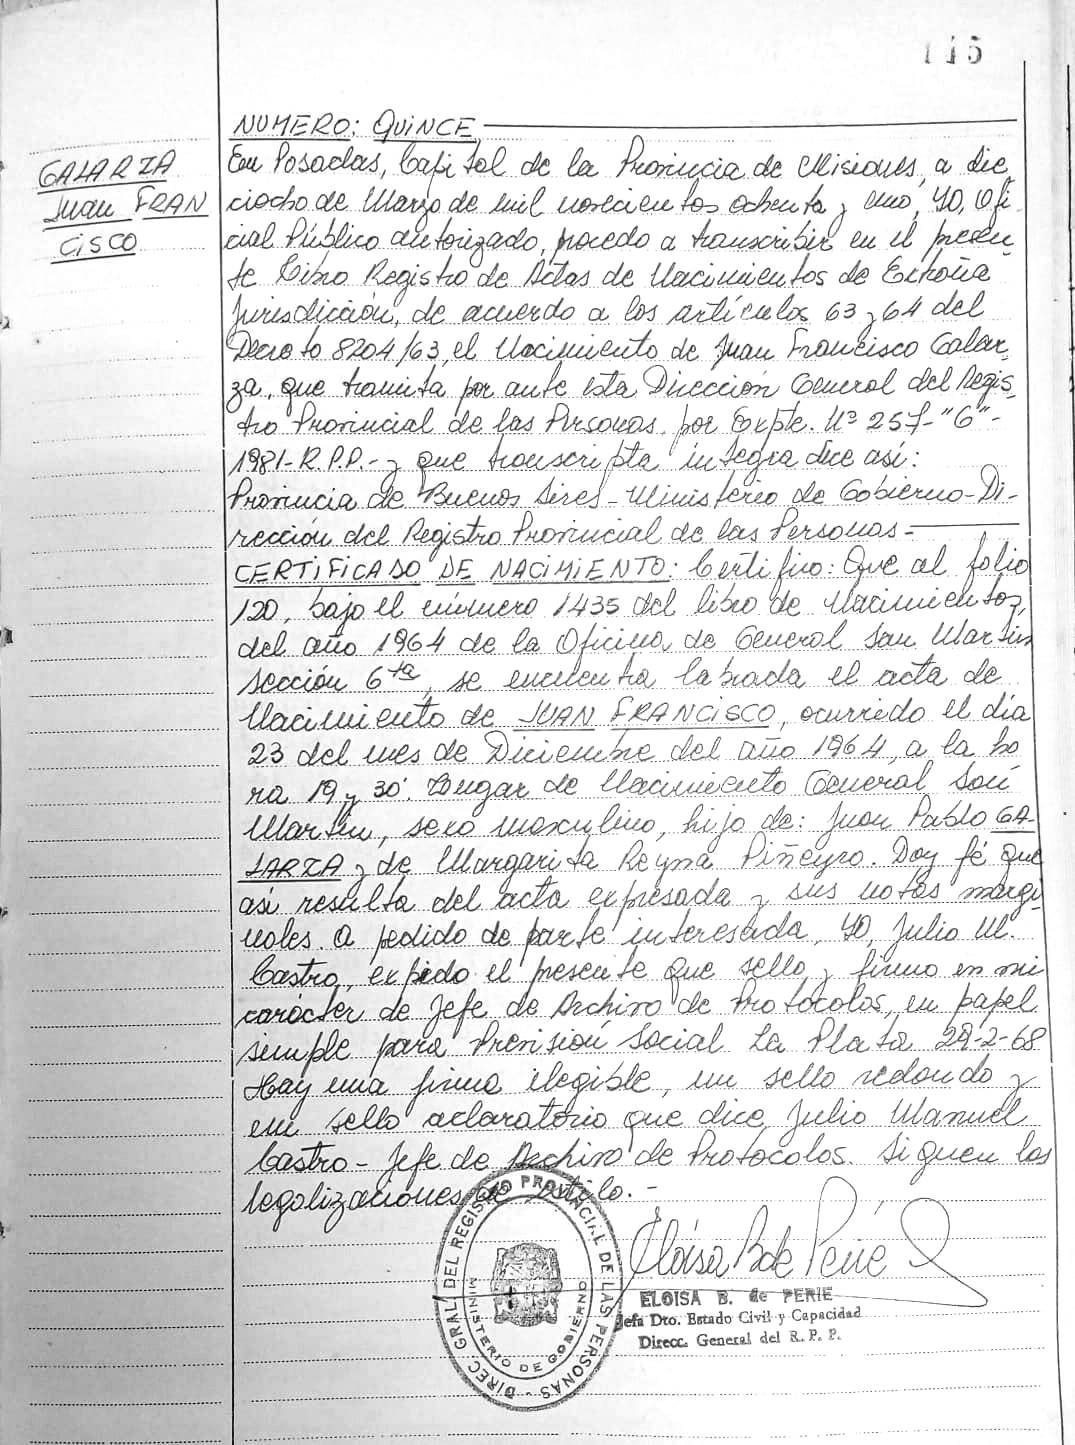 115
NUMERO: QUINCE
GALARZA
Juan FRAN
CISCO
En Posadas, Capital de la Provincia de Misiones, a die
ciocho de Marzo de mil novecientos ochenta y uno, YO, Ofi
cial Público autorizado, procedo a transcribir en el presen
te Libro Registro de Actas de Nacimientos de Extraña
Jurisdicción, de acuerdo a los artículos 63 y 64 del
Decreto 8204/63, el Nacimiento de Juan Francisco Galar
za, que tramita por ante esta Dirección General del Regis
tro Provincial de las Personas, por Expte. Nº 257-"G"-
1981-R.P.P.- y que transcripta íntegra dice así:
Provincia de Buenos Aires - Ministerio de Gobierno - Di-
rección del Registro Provincial de las Personas -
CERTIFICADO DE NACIMIENTO: Certifico: Que al folio
120, bajo el número 1435 del libro de Nacimientos,
del año 1964 de la Oficina de General San Martín
sección 6ta, se encuentra labrada el acta de
Nacimiento de JUAN FRANCISCO, ocurrido el día
23 del mes de Diciembre del año 1964, a la ho
ra 19 y 30'. Lugar de Nacimiento General San
Martín, sexo masculino, hijo de: Juan Pablo GA-
LARZA y de Margarita Reyna Piñeyro. Doy fé que
así resulta del acta expresada y sus notas margi
nales. A pedido de parte interesada, YO, Julio M.
Castro, expido el presente que sello y firmo en mi
carácter de Jefe de Archivo de Protocolos, en papel
simple para Previsión Social La Plata 29-2-68
Hay una firma ilegible, un sello redondo y
un sello aclaratorio que dice Julio Manuel
Castro - Jefe de Archivo de Protocolos. Siguen las
legalizaciones de estilo.-
DIREC. GRAL. DEL REGISTRO PROVINCIAL DE LAS PERSONAS
MINISTERIO DE GOBIERNO
Eloísa B de Perié
ELOISA B. de PERIE
Jefa Dto. Estado Civil y Capacidad
Direcc. General del R. P. P.